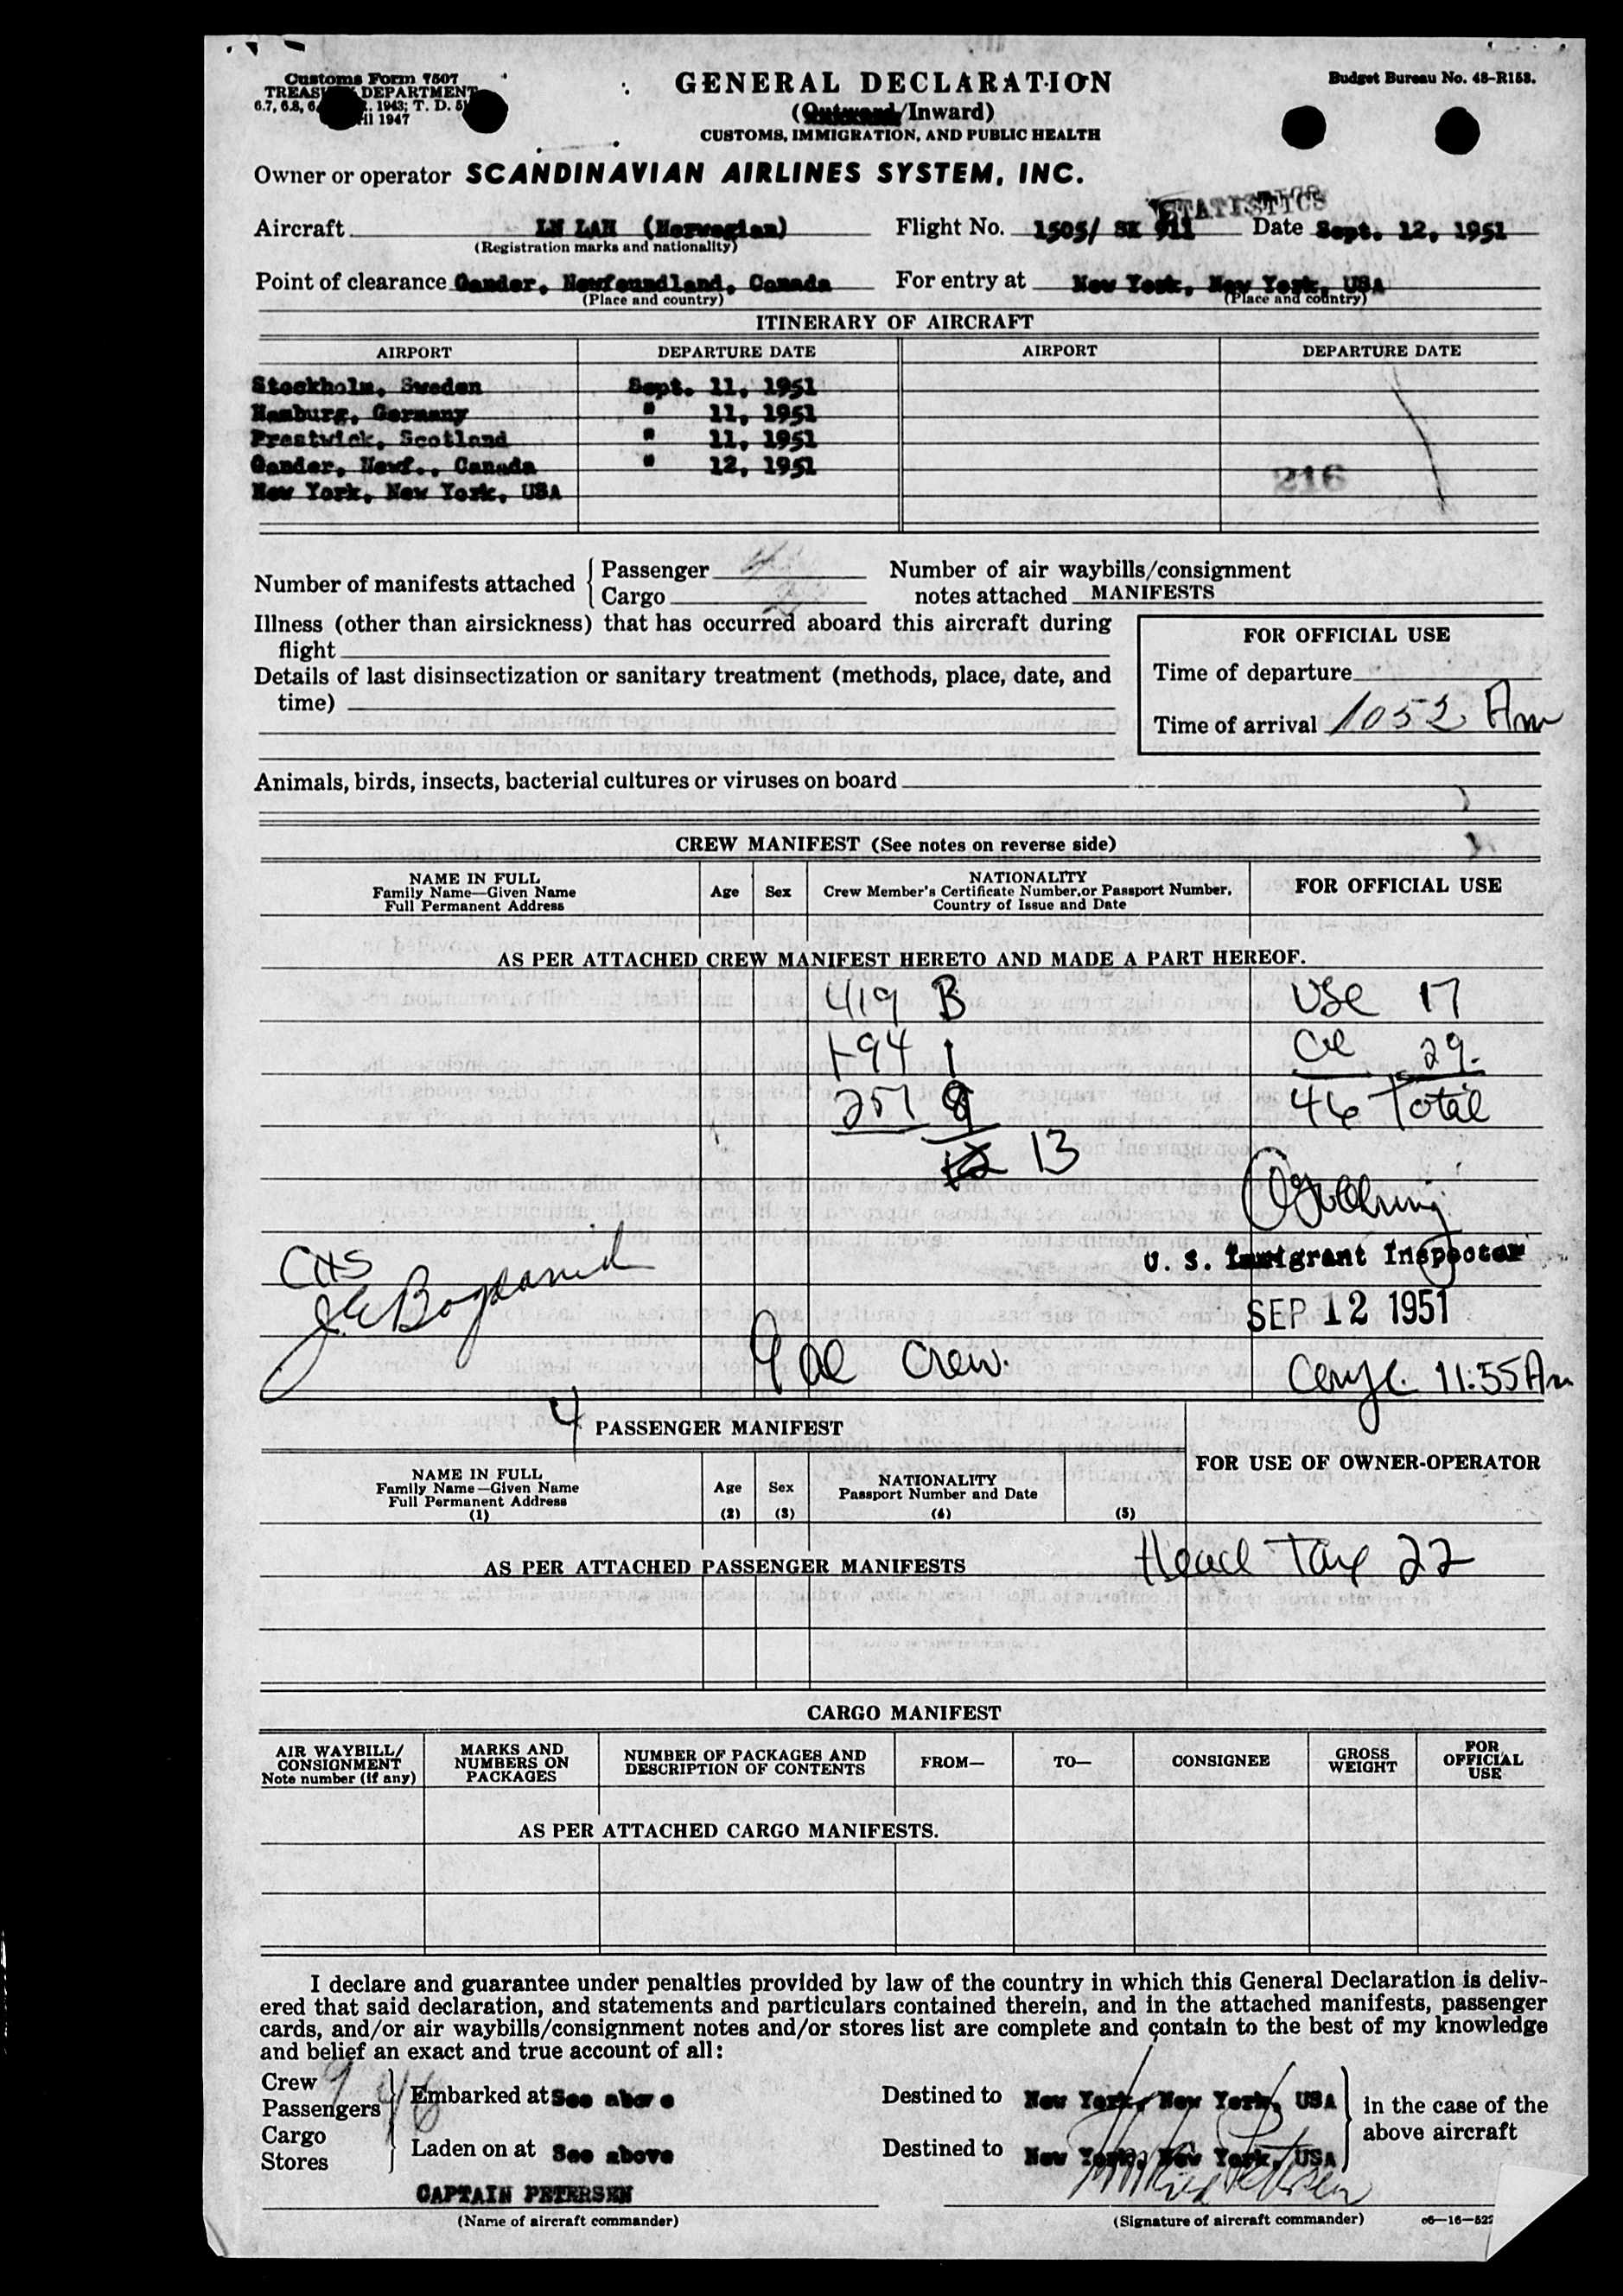 Customs Form 7507
TREASURY DEPARTMENT
6.7, 6.8, 1943; T. D. 51
1947
GENERAL DECLARATION
(Outward/Inward)
CUSTOMS, IMMIGRATION, AND PUBLIC HEALTH
Budget Bureau No. 48-R153.
Owner or operator SCANDINAVIAN AIRLINES SYSTEM, INC.
STATISTICS
Aircraft LN LAH (Norwegian) Flight No. 1505/ SK 911 Date Sept. 12, 1951
(Registration marks and nationality)
Point of clearance Gander, Newfoundland, Canada For entry at New York, New York, USA
(Place and country) (Place and country)
ITINERARY OF AIRCRAFT
AIRPORT DEPARTURE DATE AIRPORT DEPARTURE DATE
Stockholm, Sweden Sept. 11, 1951
Hamburg, Germany " 11, 1951
Prestwick, Scotland " 11, 1951
Gander, Newf., Canada " 12, 1951
216
New York, New York, USA
Number of manifests attached { Passenger 4 Number of air waybills/consignment
Cargo 2 notes attached MANIFESTS
Illness (other than airsickness) that has occurred aboard this aircraft during
flight
FOR OFFICIAL USE
Details of last disinsectization or sanitary treatment (methods, place, date, and
time)
Time of departure
Time of arrival 1052 Am
Animals, birds, insects, bacterial cultures or viruses on board
CREW MANIFEST (See notes on reverse side)
NAME IN FULL
Family Name—Given Name
Full Permanent Address
Age
Sex
NATIONALITY
Crew Member's Certificate Number, or Passport Number,
Country of Issue and Date
FOR OFFICIAL USE
AS PER ATTACHED CREW MANIFEST HERETO AND MADE A PART HEREOF.
419 B USC 17
1-94 1 29
257 8 46 Total
12 13
U. S. Immigrant Inspector
CHS
SEP 12 1951
9 al Crew.
11:55 Am
4 PASSENGER MANIFEST
FOR USE OF OWNER-OPERATOR
NAME IN FULL
Family Name—Given Name
Full Permanent Address
(1)
Age
(2)
Sex
(3)
NATIONALITY
Passport Number and Date
(4)
(5)
Head Tax 22
AS PER ATTACHED PASSENGER MANIFESTS
CARGO MANIFEST
AIR WAYBILL/
CONSIGNMENT
Note number (if any)
MARKS AND
NUMBERS ON
PACKAGES
NUMBER OF PACKAGES AND
DESCRIPTION OF CONTENTS
FROM—
TO—
CONSIGNEE
GROSS
WEIGHT
FOR
OFFICIAL
USE
AS PER ATTACHED CARGO MANIFESTS.
I declare and guarantee under penalties provided by law of the country in which this General Declaration is deliv-
ered that said declaration, and statements and particulars contained therein, and in the attached manifests, passenger
cards, and/or air waybills/consignment notes and/or stores list are complete and contain to the best of my knowledge
and belief an exact and true account of all:
Crew 9
Passengers 46 Embarked at See above Destined to New York, New York, USA in the case of the
above aircraft
Cargo
Stores Laden on at See above Destined to New York, New York, USA
CAPTAIN PETERSEN
(Name of aircraft commander) (Signature of aircraft commander)